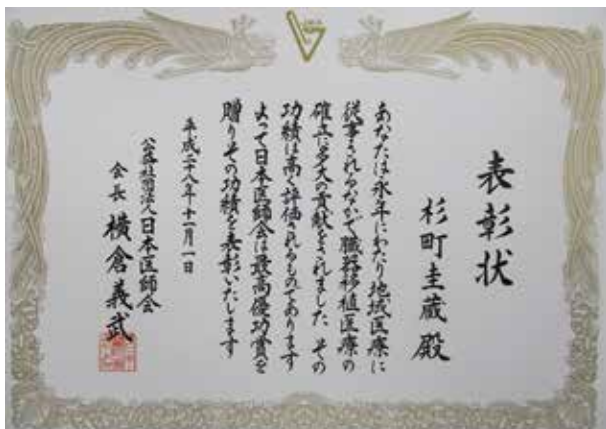 表彰状
杉町圭蔵 殿
あなたは永年にわたり地域医療に
従事されるなかで臓器移植医療の
確立に多大の貢献をされました その
功績は高く評価されるものであります
よって日本医師会は最高優功賞を
贈りその功績を表彰いたします
平成二十八年十一月一日
公益社団法人日本医師会
会長 横倉義武